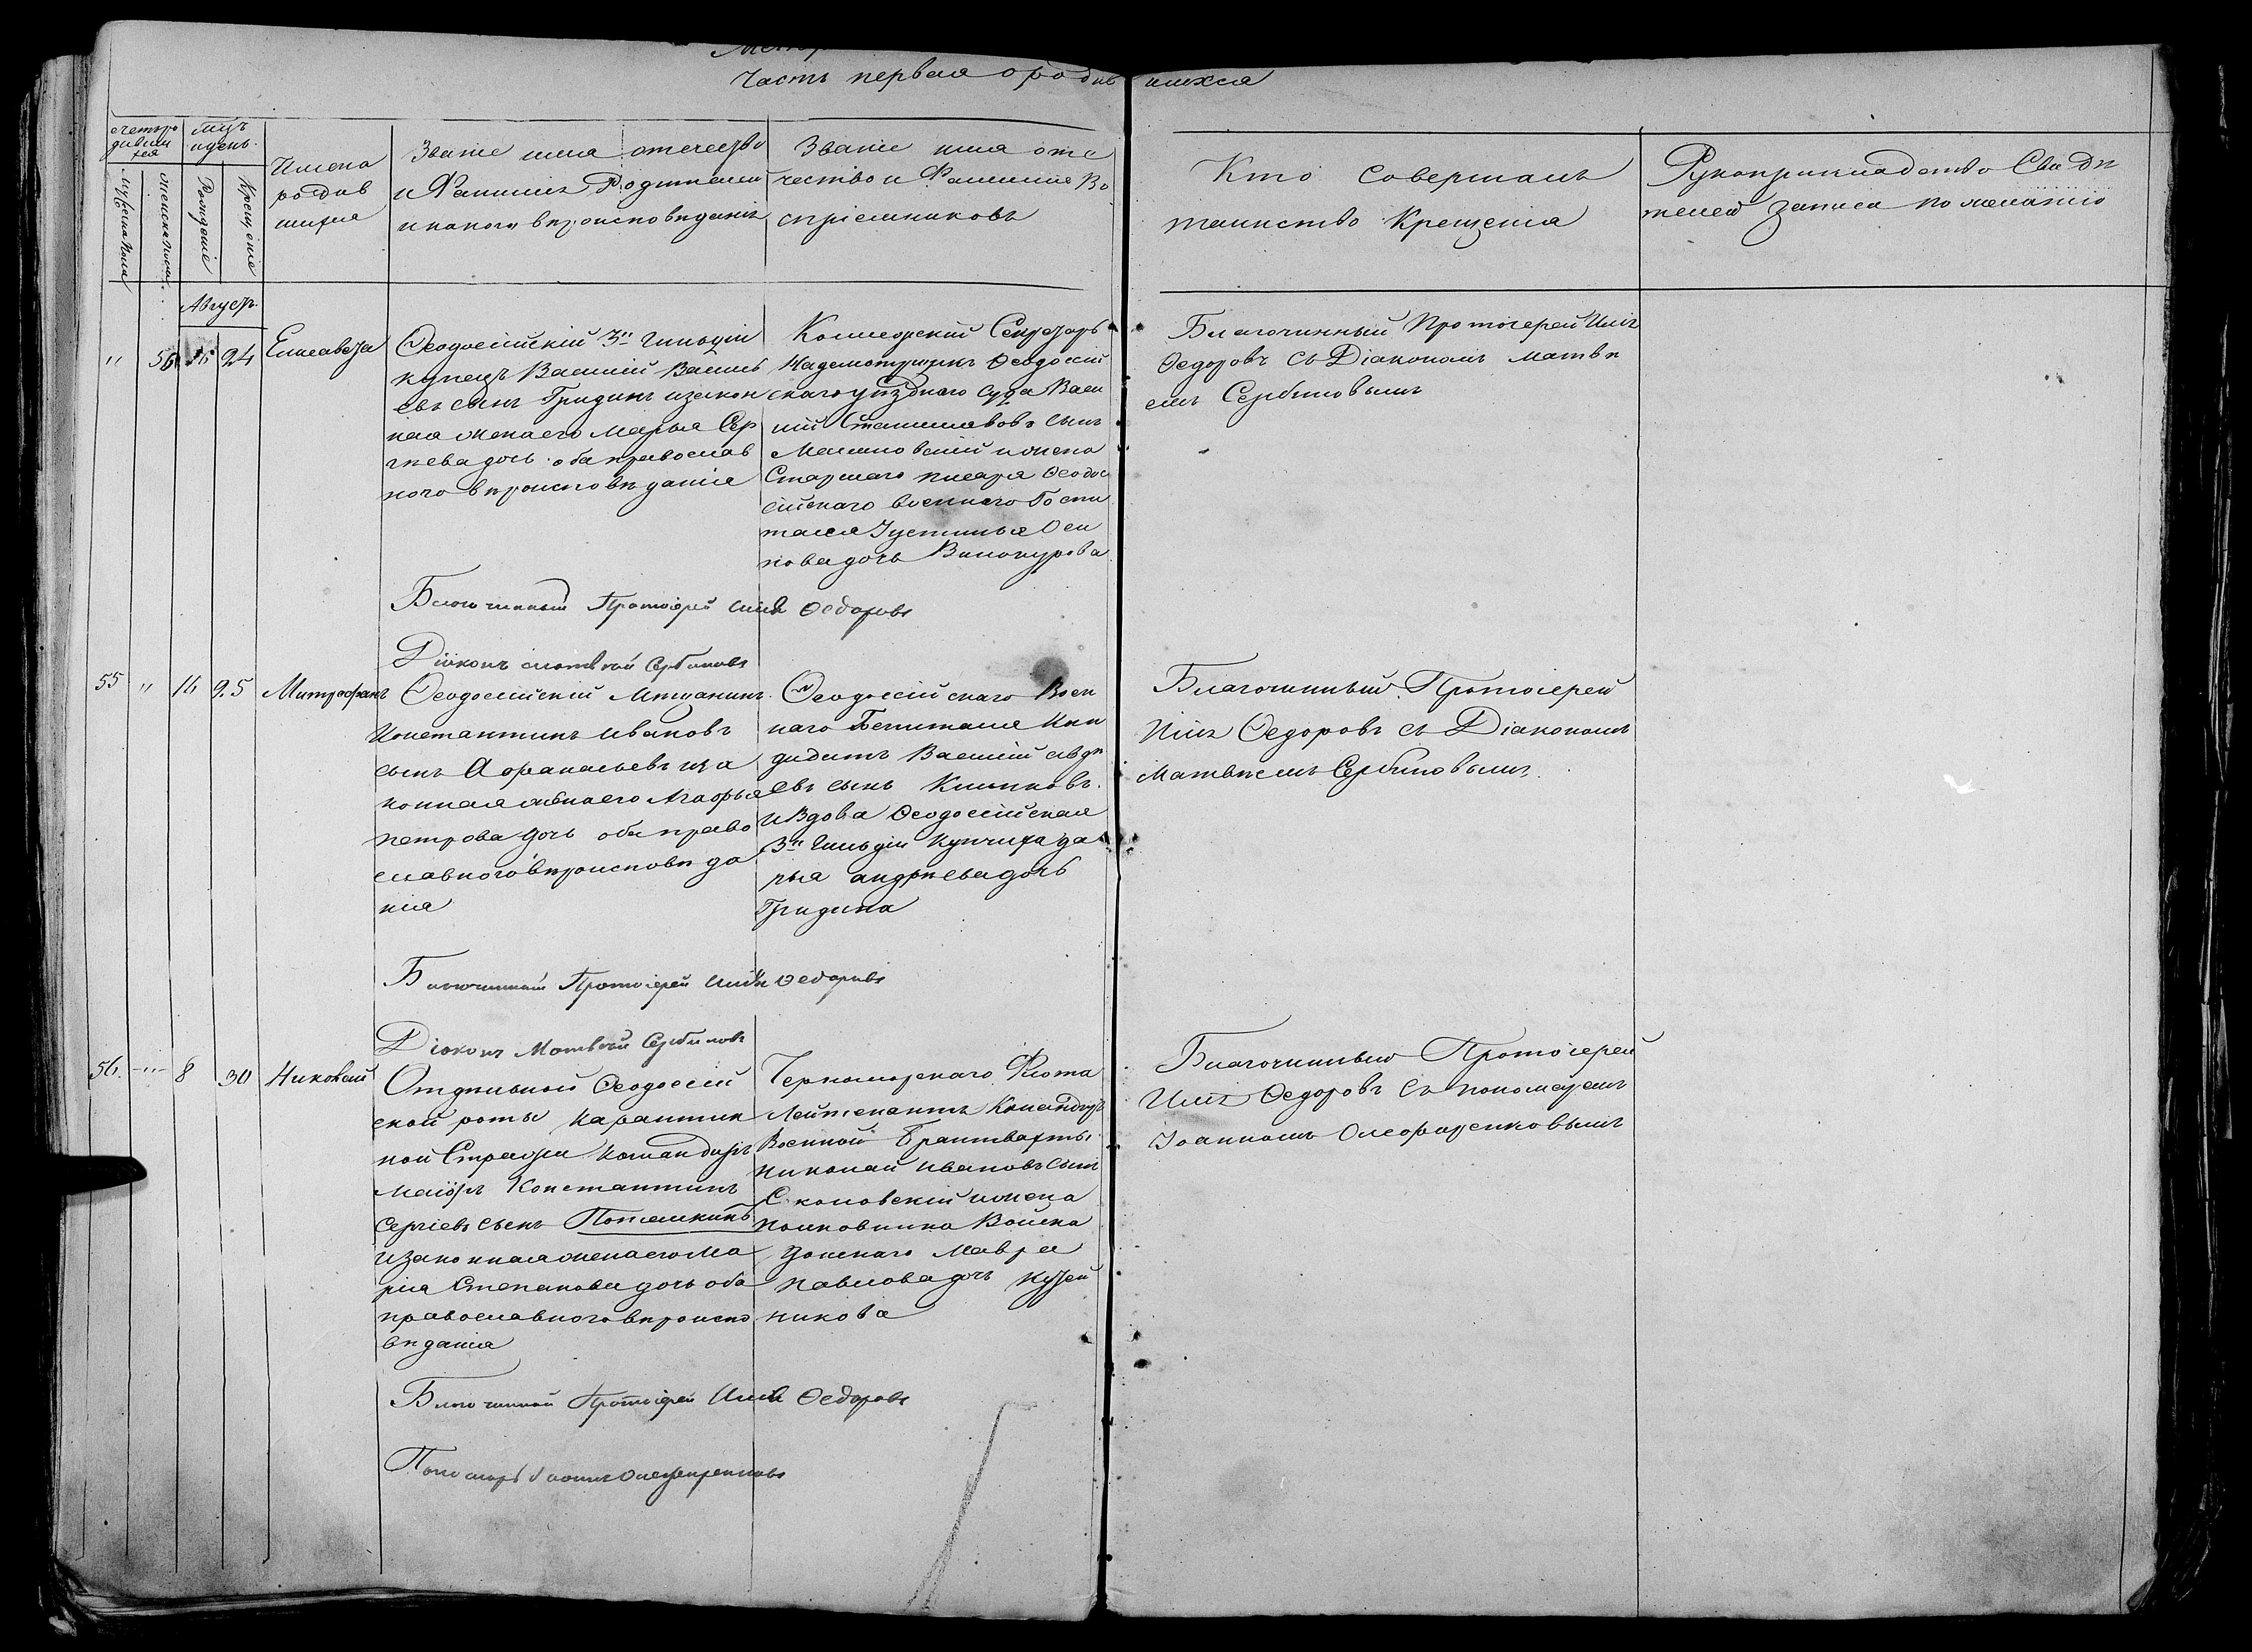 Часть первая о родив шихся
счетъ ро
дивших
ся
мцъ
и день.
Мужеска пола
Женска пола
Рожденіе
Крещеніе
Имена
родив
шихся
Званіе имя отечество
и Фамилія Родителей
и какого вѣроисповѣданія
Званіе имя оте
чество и Фамилія Во
спріемниковъ
Кто Совершалъ
таинство Крещенія
Рукоприкладство Свидѣ
телей записи по желанію
Август.
" 56 16 24 Елисавета
Ѳеодосійскій 3й Гильдіи
купецъ Василій Василь
евъ сынъ Гридинъ и закон
ная жена его Марья Сер
гѣева дочь оба православ
ного вѣроисповѣданія
Коллежскій Секретарь
Надсмотрщикъ Ѳеодосій
скаго уѣзднаго Суда Васи
лій Станиславовъ сынъ
и жена
Старшаго писаря Ѳеодос
ійскаго военнаго Госпи
таля Устинья Оси
пова дочь Винокурова
Благочинный Протоіерей Илія
Ѳедоровъ съ Діакономъ Матвѣ
емъ Сербиновымъ
Благочинный Протоіерей Илія Ѳедоровъ
Діаконъ Матвѣй Сербиновъ
55 " 16 25 Митрофанъ
Ѳеодосійскій Мѣщанинъ
Константинъ Ивановъ
сынъ Афанасьевъ и за
конная жена его Марфа
Петрова дочь оба право
славного вѣроисповѣда
нія
Ѳеодосійскаго Воен
наго Гошпиталя Кан
дидатъ Василій
евъ сынъ
и Вдова Ѳеодосійская
3й Гильдіи Купчиха Да
рья Андрѣева дочь
Гридина
Благочинный Протоіерей
Илія Ѳедоровъ съ Діакономъ
Матвѣемъ Сербиновымъ
Благочинный Протоіерей Илія Ѳедоровъ
Діаконъ Матвѣй Сербиновъ
56. " 8 30 Николай
Отдѣльной Ѳеодосій
ской роты Карантин
ной Стражи Командиръ
Маіоръ Константинъ
Сергіевъ сынъ Потемкинъ
и законная жена его Ма
рія Степанова дочь оба
православного вѣроиспо
вѣданія
Черноморскаго Флота
Лейтенантъ Командиръ
Военной Брантвахты
Николай Ивановъ сынъ
и жена
полковника Войска
Донскаго Мавра
Павлова дочь
никова
Благочинный Протоіерей
Илія Ѳедоровъ съ пономаремъ
Іоанномъ Олефиренковымъ
Благочинной Протоіерей Илія Ѳедоровъ
Пономарь Іоаннъ Олефиренковъ